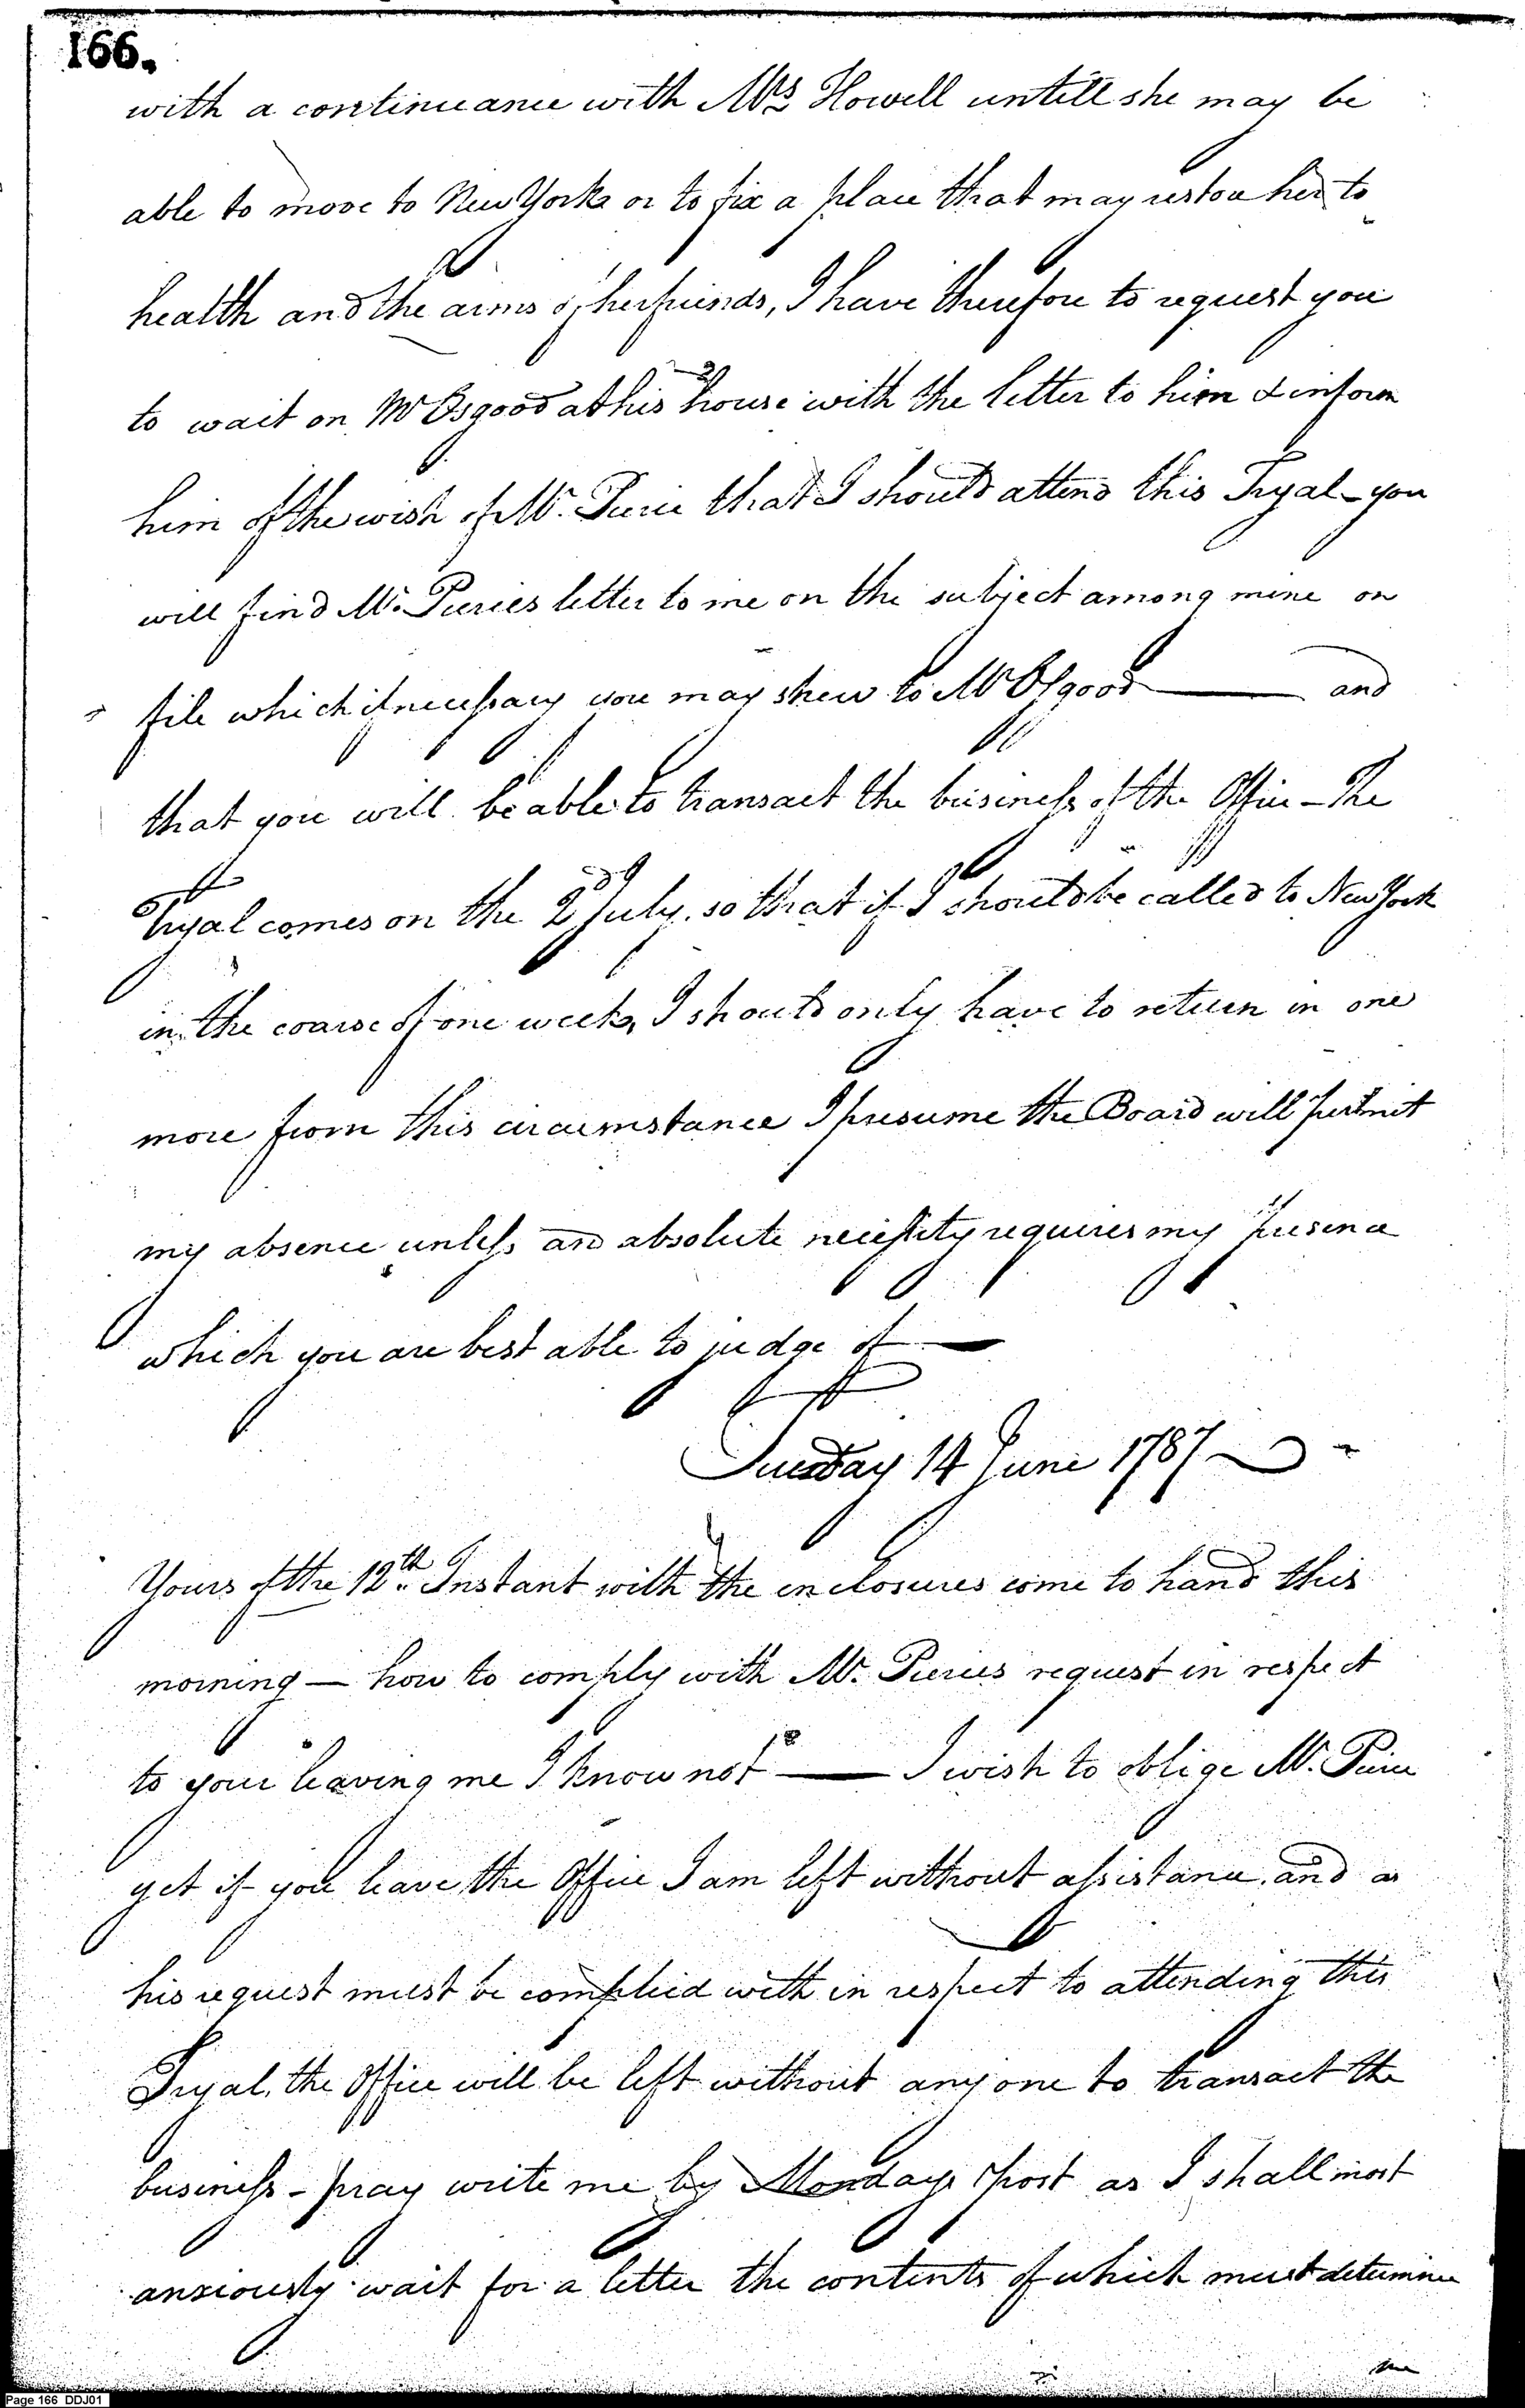 166.
with a continuance with Mrs Howell untill she may be
able to move to New York or to fix a place that may restore her to
health and the arms of her friends, I have therefore to request you
to wait on Mr Osgood at his house with the letter to him & inform
him of the wish of Mr. Pierce that I should attend this Tryal - you
will find Mr. Pierces letter to me on the subject among mine on
file which if necessary you may shew to Mr Osgood —— and
that you will be able to transact the business of the Office - The
Tryal comes on the 2d July, so that if I should be called to New York
in the coarse of one week, I should only have to return in one
more from this circumstance I presume the Board will permit
my absence unless and absolute necessity requires my presence
which you are best able to judge of —
Tuesday 14 June 1787
Yours of the 12th Instant with the enclosures come to hand this
morning — how to comply with Mr. Pierces request in respect
to your leaving me I know not —— I wish to oblige Mr. Pierce
yet if you leave the Office I am left without assistance, and as
his request must be complied with in respect to attending this
Tryal, the Office will be left without any one to transact the
business - pray write me by Mondays Post as I shall most
anxiously wait for a letter the contents of which must determine
me
Page 166 DDJ01